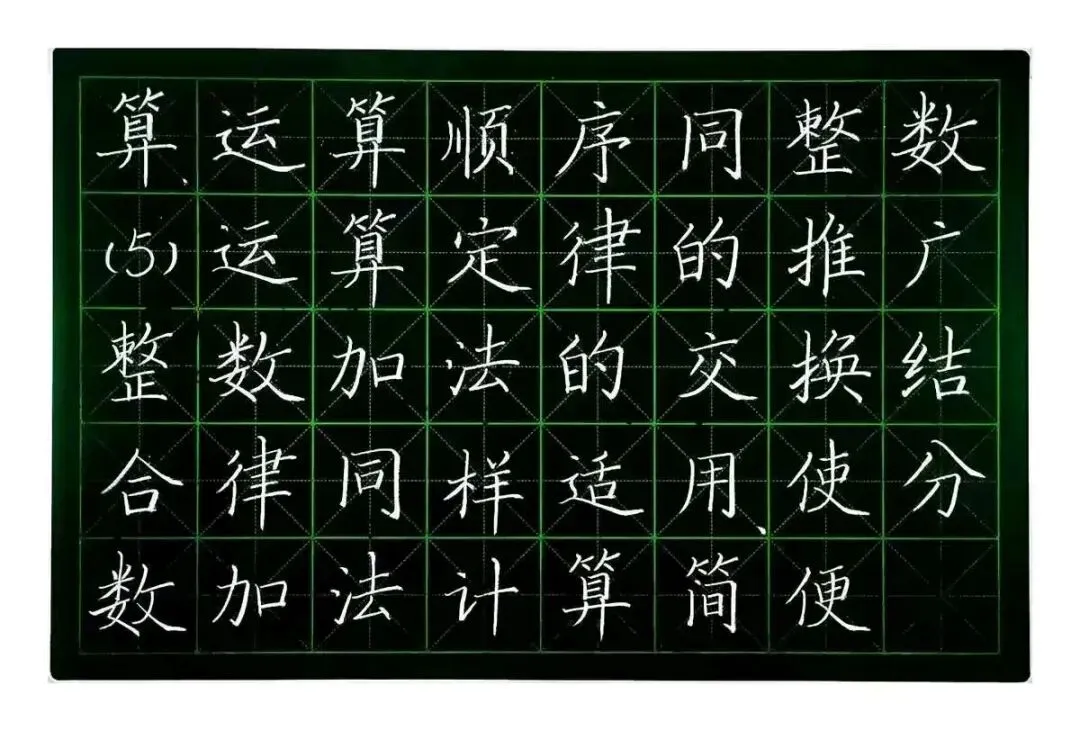 算、运算顺序同整数
(5)运算定律的推广
整数加法的交换结
合律同样适用、使分
数加法计算简便